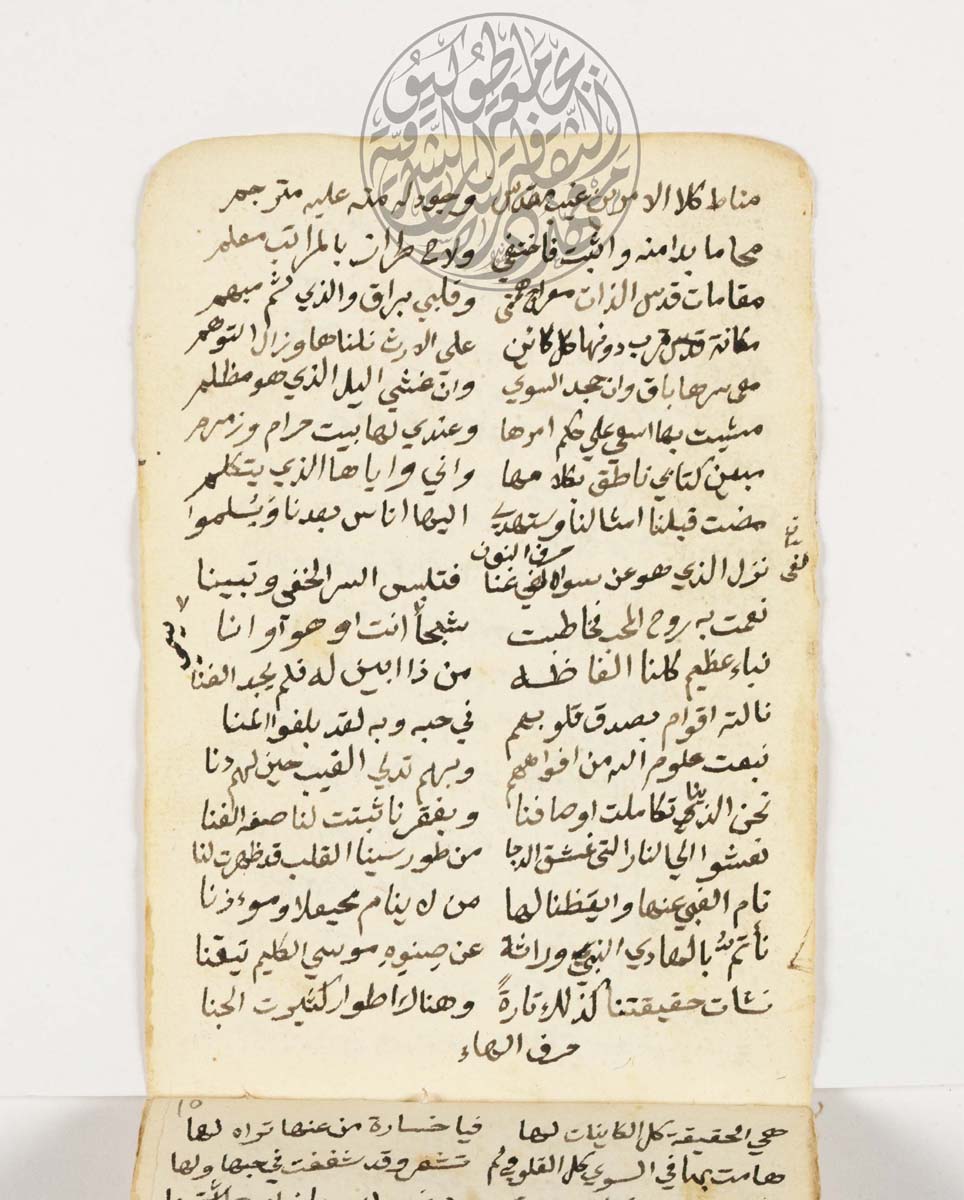 مناط كلا الامر من غيب مقدس وجود له منه عليه مترجم
محا ما بدا منه واثبت فاختفي ولاح طراز بالمراتب معلم
مقامات قدس الذات معراج همتي وقلبي براق والذي ثم مبهم
مكانة قدس قرب دونها كل كائن علي الارث نلناها وزال التوهم
معي سرها باق وان جحد السوي وان غشي اليل الذي هو مظلم
مشيت بها اسعي علي حكم امرها وعندي لها بيت حرام وزمزم
مبين كتابي ناطق بكلامها واني واياها الذي يتكلم
مضت قبلنا امثالنا وستهتدي اليها اناس بعدنا ويسلموا
حرف النون
نزل الذي هو عن سواه لفي غنا فتلبس السر الخفي وتبينا
نعمت به روح المحب فخاطبت شبحا انت او هو او انا
نباء عظيم كلنا الفاظه من ذا ابين له فلم يجد الفنا
نالته اقوام بصدق قلوبهم في حبه وبه لقد بلغوا المنا
نبعت علوم الله من افواههم وبهم تدلي الغيب حين لهم دنا
نحن الذين تكاملت اوصافنا وبفقرنا ثبتت لنا صفه الغنا
نعشوا الي النار التي غسق الدجا من طور سينا القلب قد ظهرت لنا
نام الغبي عنها وايقظنا لها من لا ينام محيعلا وموءذنا
نأتم بالهادي النبي وراثة عن صنوه موسي الكليم تيقنا
نشات حقيقتنا كذلك تارة وهناك اطوار كثيرت الجنا
حرف الهاء
١٥
هي الحقيقة كل الكاينات لها فيا خسارة من عنها تراه لها
هامت بها في السوي كل القلوب ولم تشعر وقد شغفت في حبها ولها